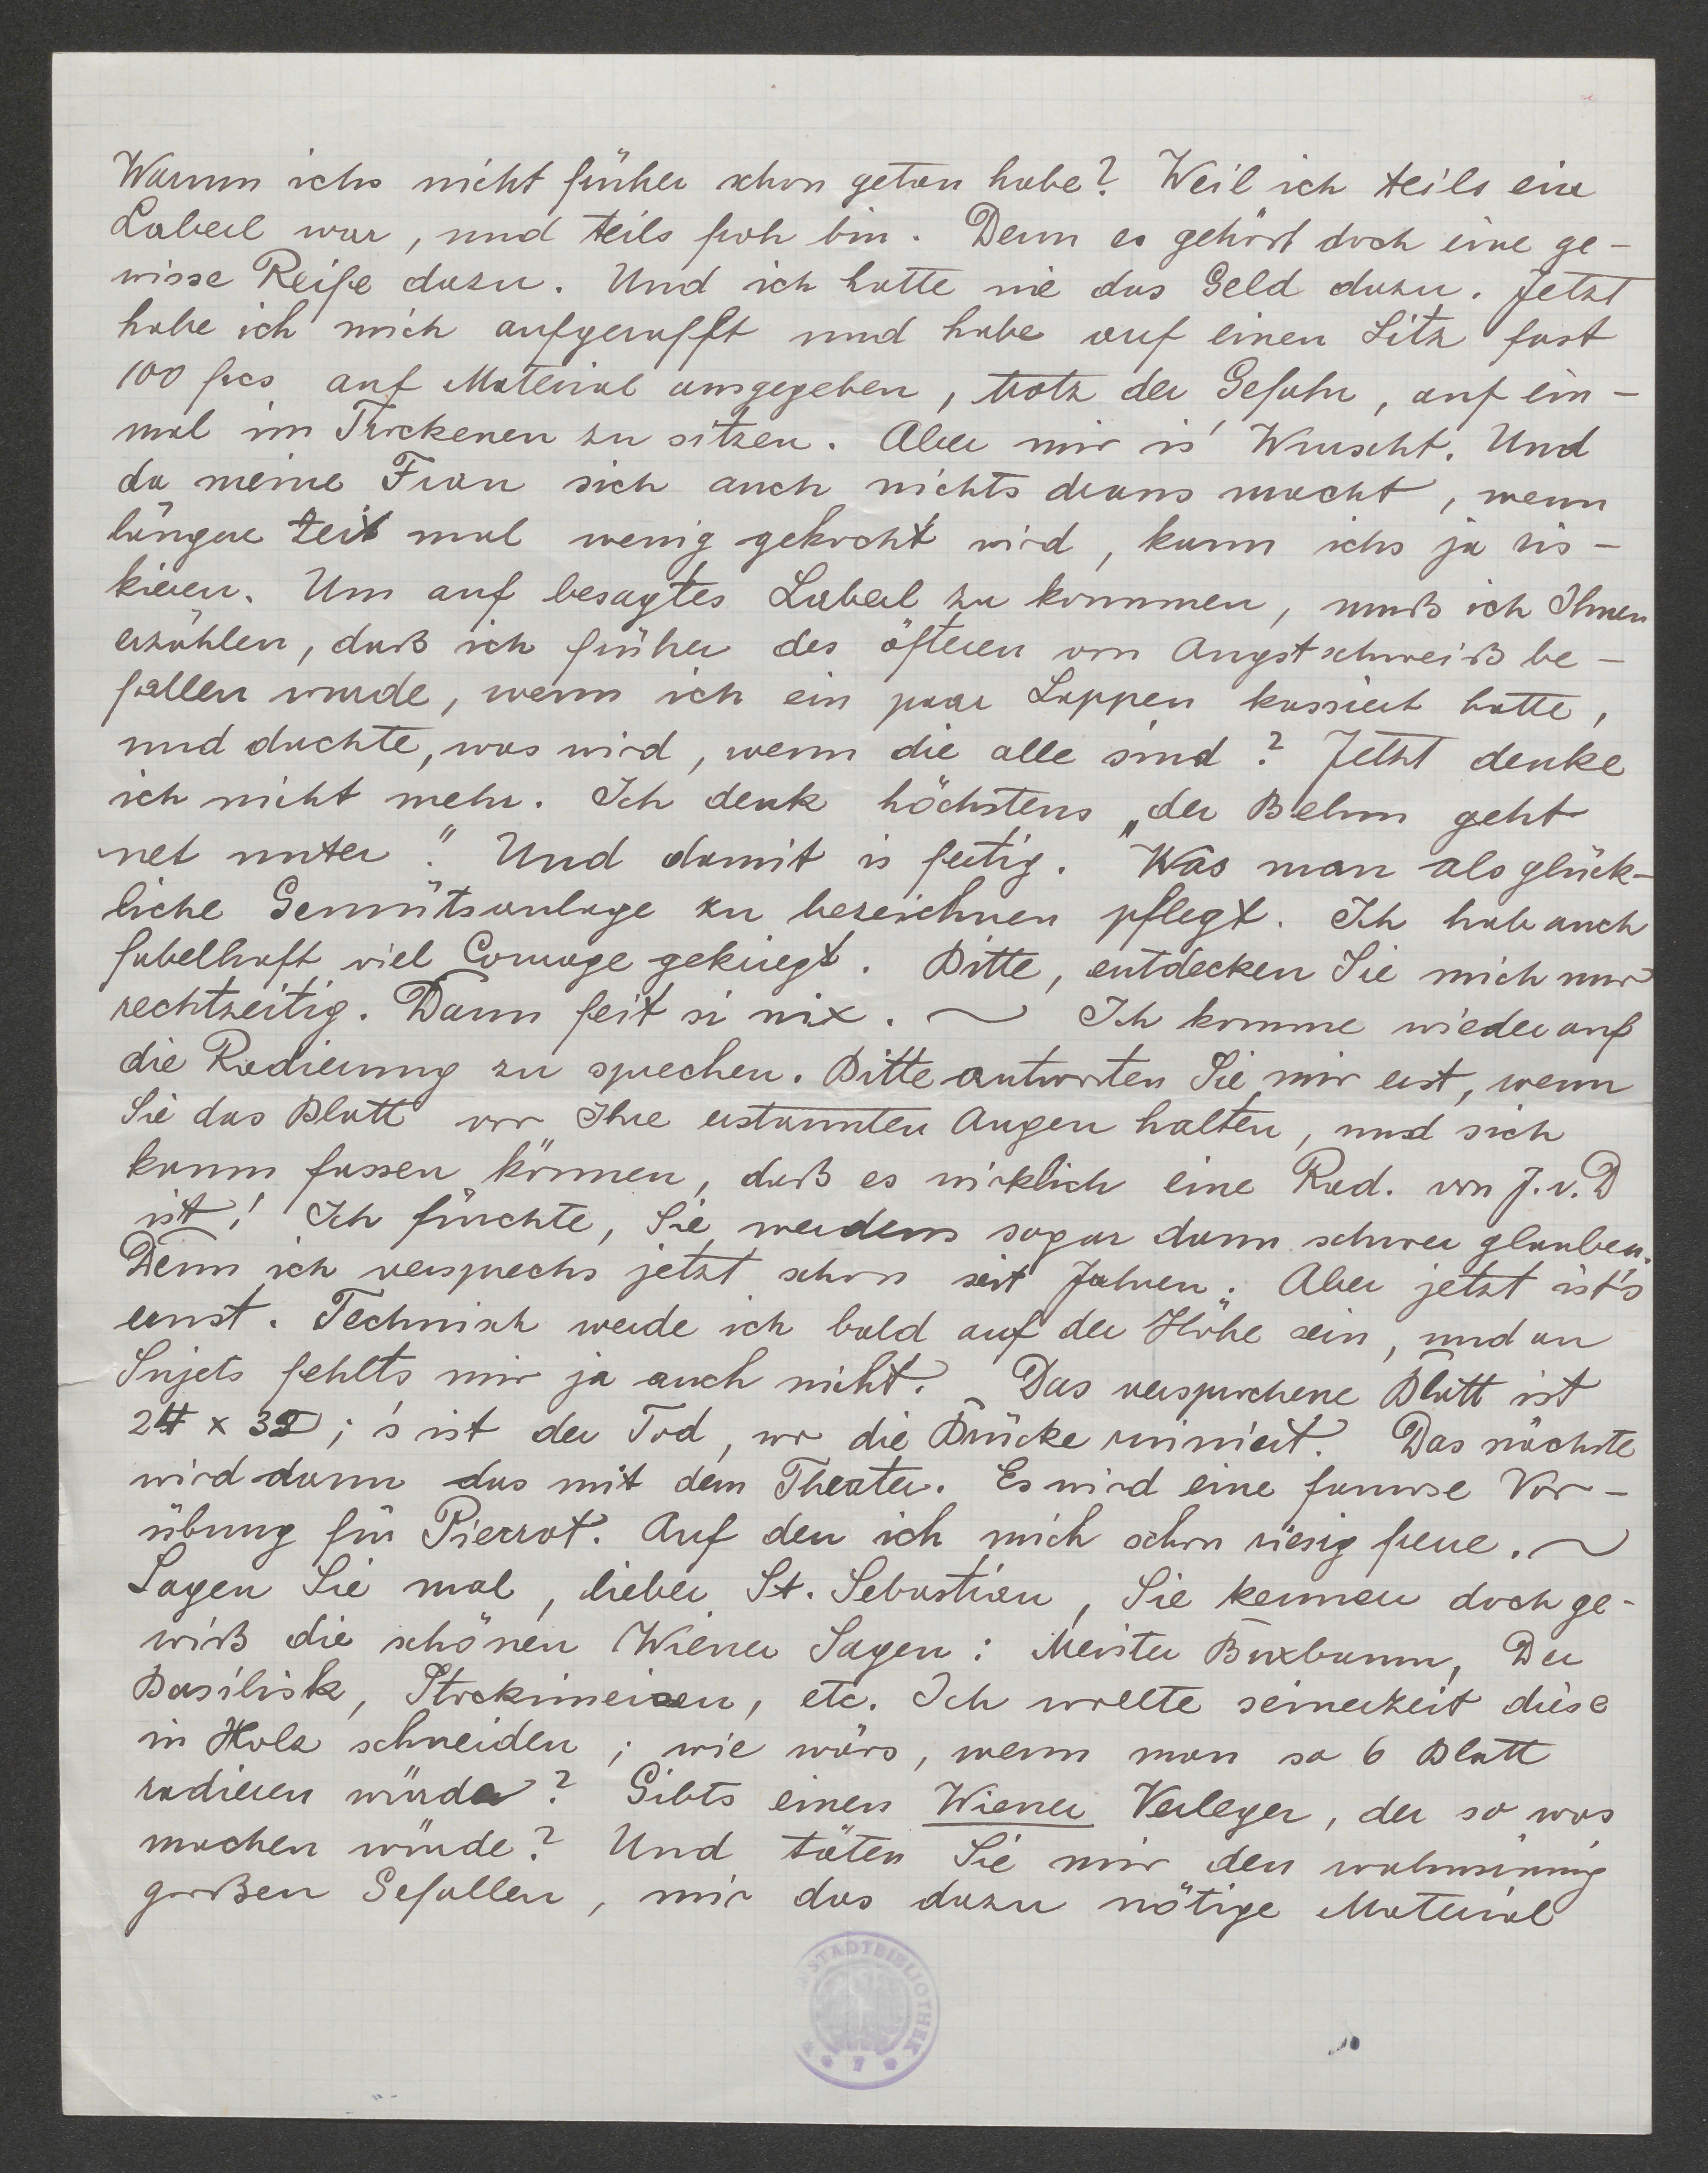 Warum ichs nicht früher schon getan habe? Weil ich teils ein
Laberl war, und teils froh bin. Denn es gehört doch eine ge-
wisse Reife dazu. Und ich hatte nie das Geld dazu. Jetzt
habe ich mich aufgerafft und habe auf einen Sitz fast
100 frcs auf Material ausgegeben, trotz der Gefahr, auf ein-
mal im Trockenen zu sitzen. Aber mir is' Wurscht. Und
da meine Frau sich auch nichts draus macht, wenn
längere Zeit mal wenig gekocht wird, kann ichs ja ris-
kieren. Um auf besagtes Laberl zu kommen, muß ich Ihnen
erzählen, daß ich früher des öfteren von Angstschweiß be-
fallen wurde, wenn ich ein paar Lappen kassiert hatte,
und dachte, was wird, wenn die alle sind? Jetzt denke
ich nicht mehr. Ich denk höchstens „der Behm geht
net unter." Und damit is fertig. Was man als glück-
liche Gemütsanlage zu bezeichnen pflegt. Ich hab auch
fabelhaft viel Courage gekriegt. Bitte, entdecken Sie mich nur
rechtzeitig. Dann feit si nix. ~ Ich komme wieder auf
die Radierung zu sprechen. Bitte antworten Sie mir erst, wenn
Sie das Blatt vor Ihre erstaunten Augen halten, und sich
kaum fassen können, daß es wirklich eine Rad. von J. v. D
ist! Ich fürchte, Sie werdens sogar dann schwer glauben.
Denn ich versprechs jetzt schon seit Jahren. Aber jetzt ist's
ernst. Technisch werde ich bald auf der Höhe sein, und an
Sujets fehlts mir ja auch nicht. Das versprochene Blatt ist
24 x 32; 's ist der Tod, wo die Brücke ruiniert. Das nächste
wird dann das mit dem Theater. Es wird eine famose Vor-
übung für Pierrot. Auf den ich mich schon riesig freue. ~
Sagen Sie mal, lieber St. Sebastian, Sie kennen doch ge-
wiß die schönen Wiener Sagen: Meister Buxbaum, Der
Basilisk, Stockimeisen, etc. Ich wollte seinerzeit diese
in Holz schneiden; wie wärs, wenn man so 6 Blatt
radieren würde? Gibts einen Wiener Verleger, der so was
machen würde? Und täten Sie mir den wahnsinnig
großen Gefallen, mir das dazu nötige Material
STADTBIBLIOTHEK